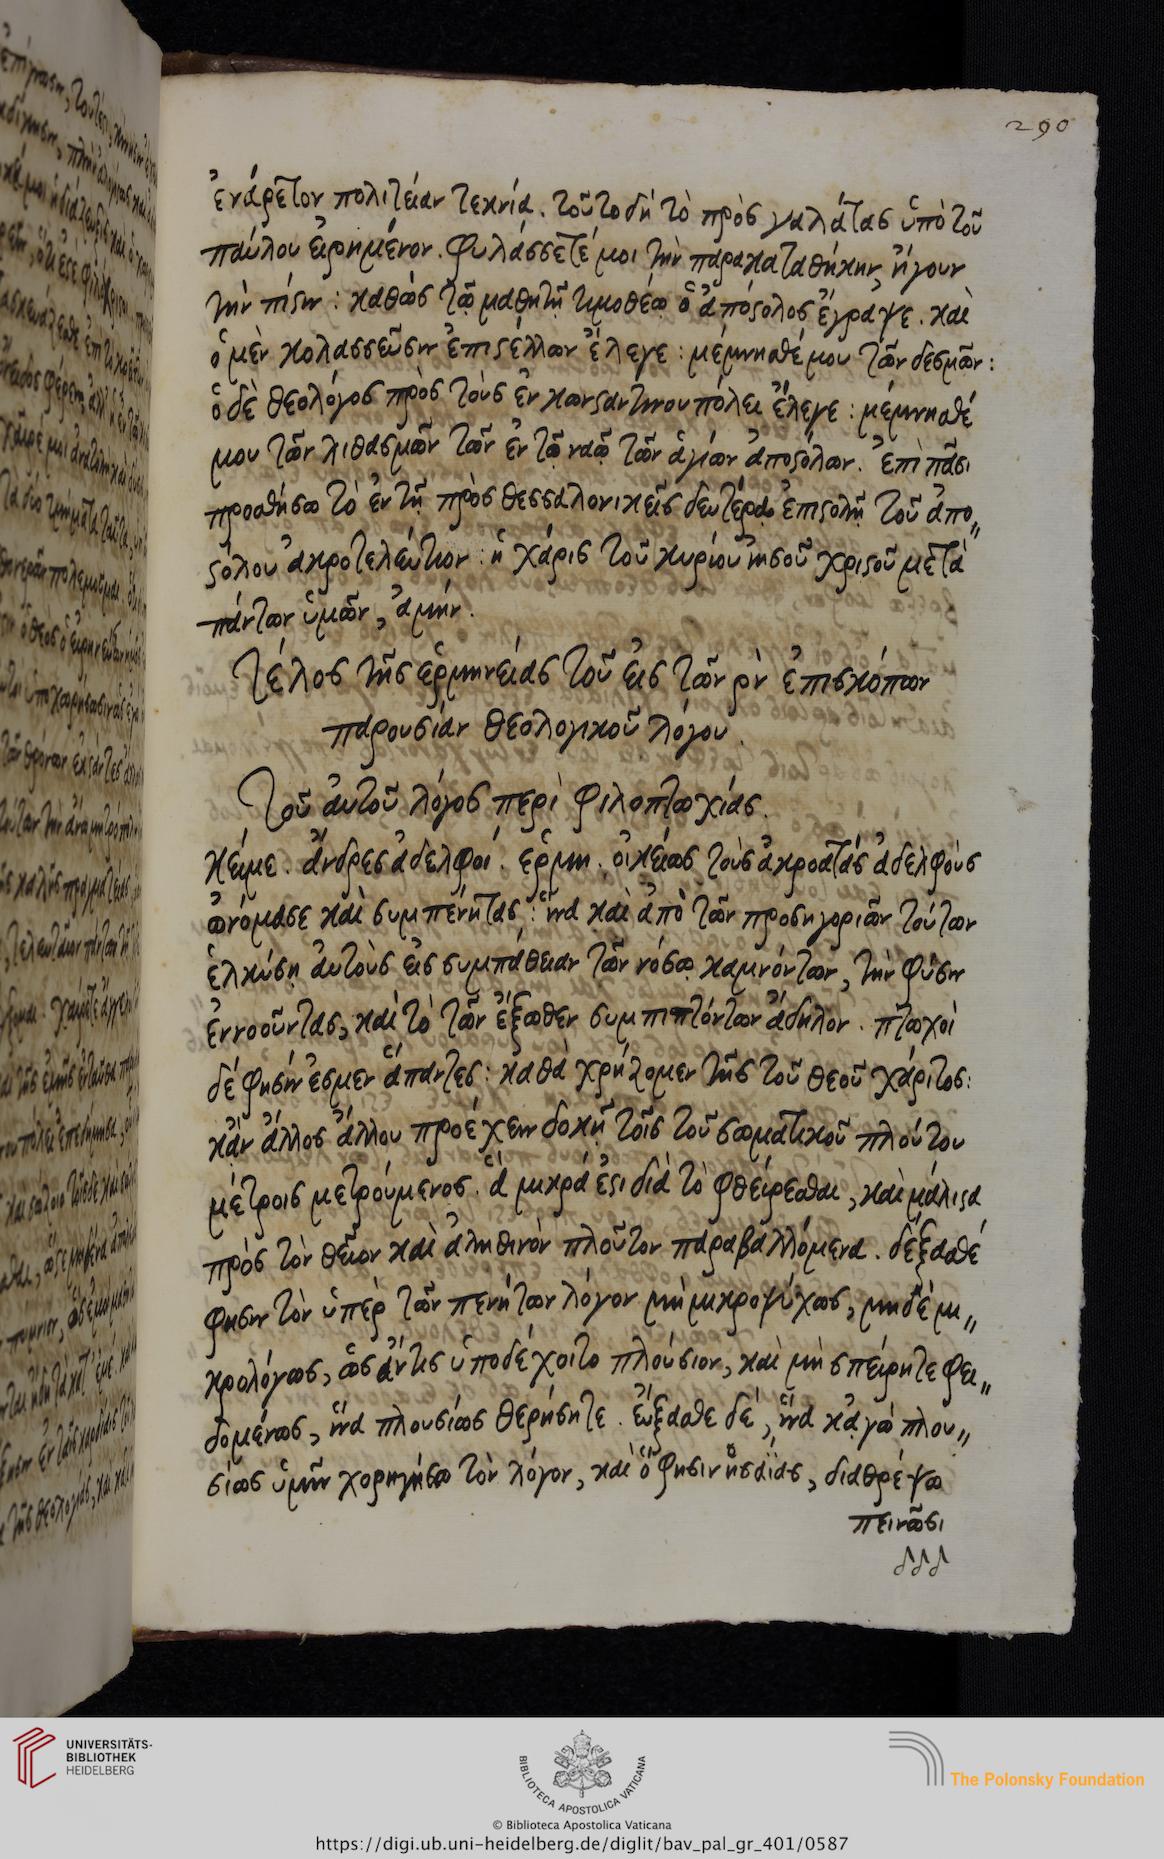 290
ἐνάρετον πολιτείαν τεκνία. τοῦτο δὴ τὸ πρὸς γαλάτας ὑπὸ τοῦ
παύλου εἰρημένον. φυλάσσετέ μοι τὴν παρακαταθήκην, ἤγουν
τὴν πίστιν : καθὼς τῷ μαθητῇ τιμοθέῳ ὁ ἀπόστολος ἔγραψε. καὶ
ὁ μὲν κολασσεῦσιν ἐπιστέλλων ἔλεγε : μέμνησθέ μου τῶν δεσμῶν :
ὁ δὲ θεολόγος πρὸς τοὺς ἐν κωνσταντινουπόλει ἔλεγε : μέμνησθέ
μου τῶν λιθασμῶν τῶν ἐν τῷ ναῷ τῶν ἁγίων ἀποστόλων. ἐπὶ πᾶσι
προσθήσω τὸ ἐν τῇ πρὸς θεσσαλονικεῖς δευτέρᾳ ἐπιστολῇ τοῦ ἀπο„
στόλου ἀκροτελεύτιον : ἡ χάρις τοῦ κυρίου ἰησοῦ χριστοῦ μετὰ
πάντων ὑμῶν, ἀμήν.
Τέλος τῆς ἑρμηνείας τοῦ εἰς τῶν ρν̀ ἐπισκόπων
παρουσίαν θεολογικοῦ λόγου.
Τοῦ αὐτοῦ λόγος περὶ φιλοπτωχίας.
κείμε. ἄνδρες ἀδελφοί. ἑρμη. οἰκείως τοὺς ἀκροατάς ἀδελφοὺς
ὠνόμασε καὶ συμπένητας : ἵνα καὶ ἀπὸ τῶν προσηγοριῶν τούτων
ἑλκύσῃ αὐτοὺς εἰς συμπάθειαν τῶν νόσῳ καμνόντων, τὴν φύσιν
ἐννοοῦντας, καὶ τὸ τῶν ἔξωθεν συμπιπτόντων ἄδηλον. πτωχοὶ
δέ φησίν ἐσμεν ἅπαντες : καθὰ χρῄζομεν τῆς τοῦ θεοῦ χάριτος:
κἂν ἄλλος ἄλλου προέχειν δοκῇ τοῖς τοῦ σωματικοῦ πλούτου
μέτροις μετρούμενος. ἃ μικρά ἐστι διὰ τὸ φθείρεσθαι, καὶ μάλιστα
πρὸς τὸν θεῖον καὶ ἀληθινὸν πλοῦτον παραβαλλόμενα. δέξασθέ
φησιν τὸν ὑπὲρ τῶν πενήτων λόγον μὴ μικροψύχως, μηδὲ μι„
κρολόγως, ὡς ἄν τις ὑποδέχοιτο πλούσιον, καὶ μὴ σπείρητε φει„
δομένως, ἵνα πλουσίως θερήσητε. εὔξασθε δέ, ἵνα κἀγὼ πλου„
σίως ὑμῖν χορηγήσω τὸν λόγον, καὶ ὅ φησιν ἡσαΐας, διαθρέψω
πεινῶσι
UNIVERSITÄTS-
BIBLIOTHEK
HEIDELBERG
BIBLIOTECA APOSTOLICA VATICANA
© Biblioteca Apostolica Vaticana
The Polonsky Foundation
https://digi.ub.uni-heidelberg.de/diglit/bav_pal_gr_401/0587